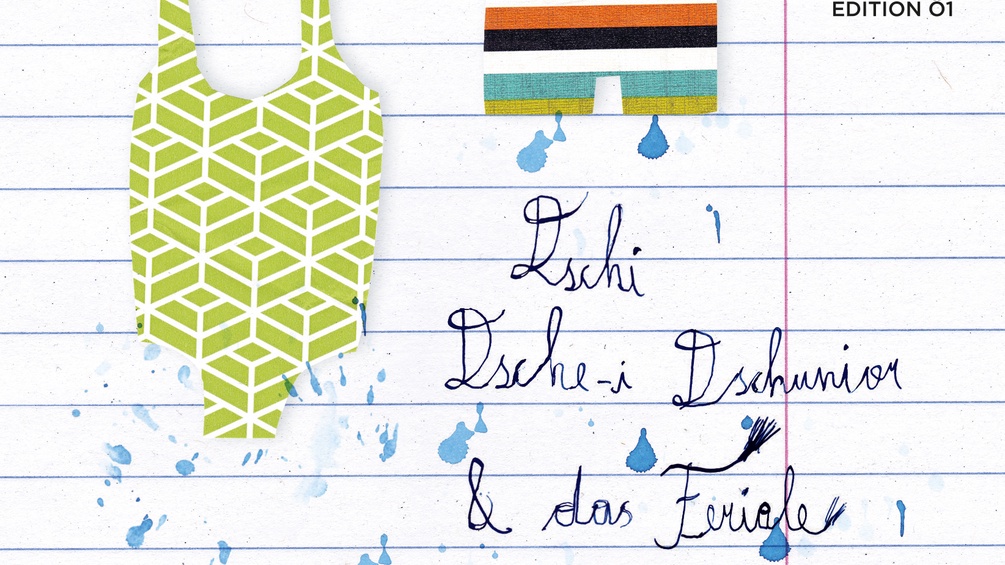 EDITION 01
Dschi
Dsche-i Dschunior
& das Feriale